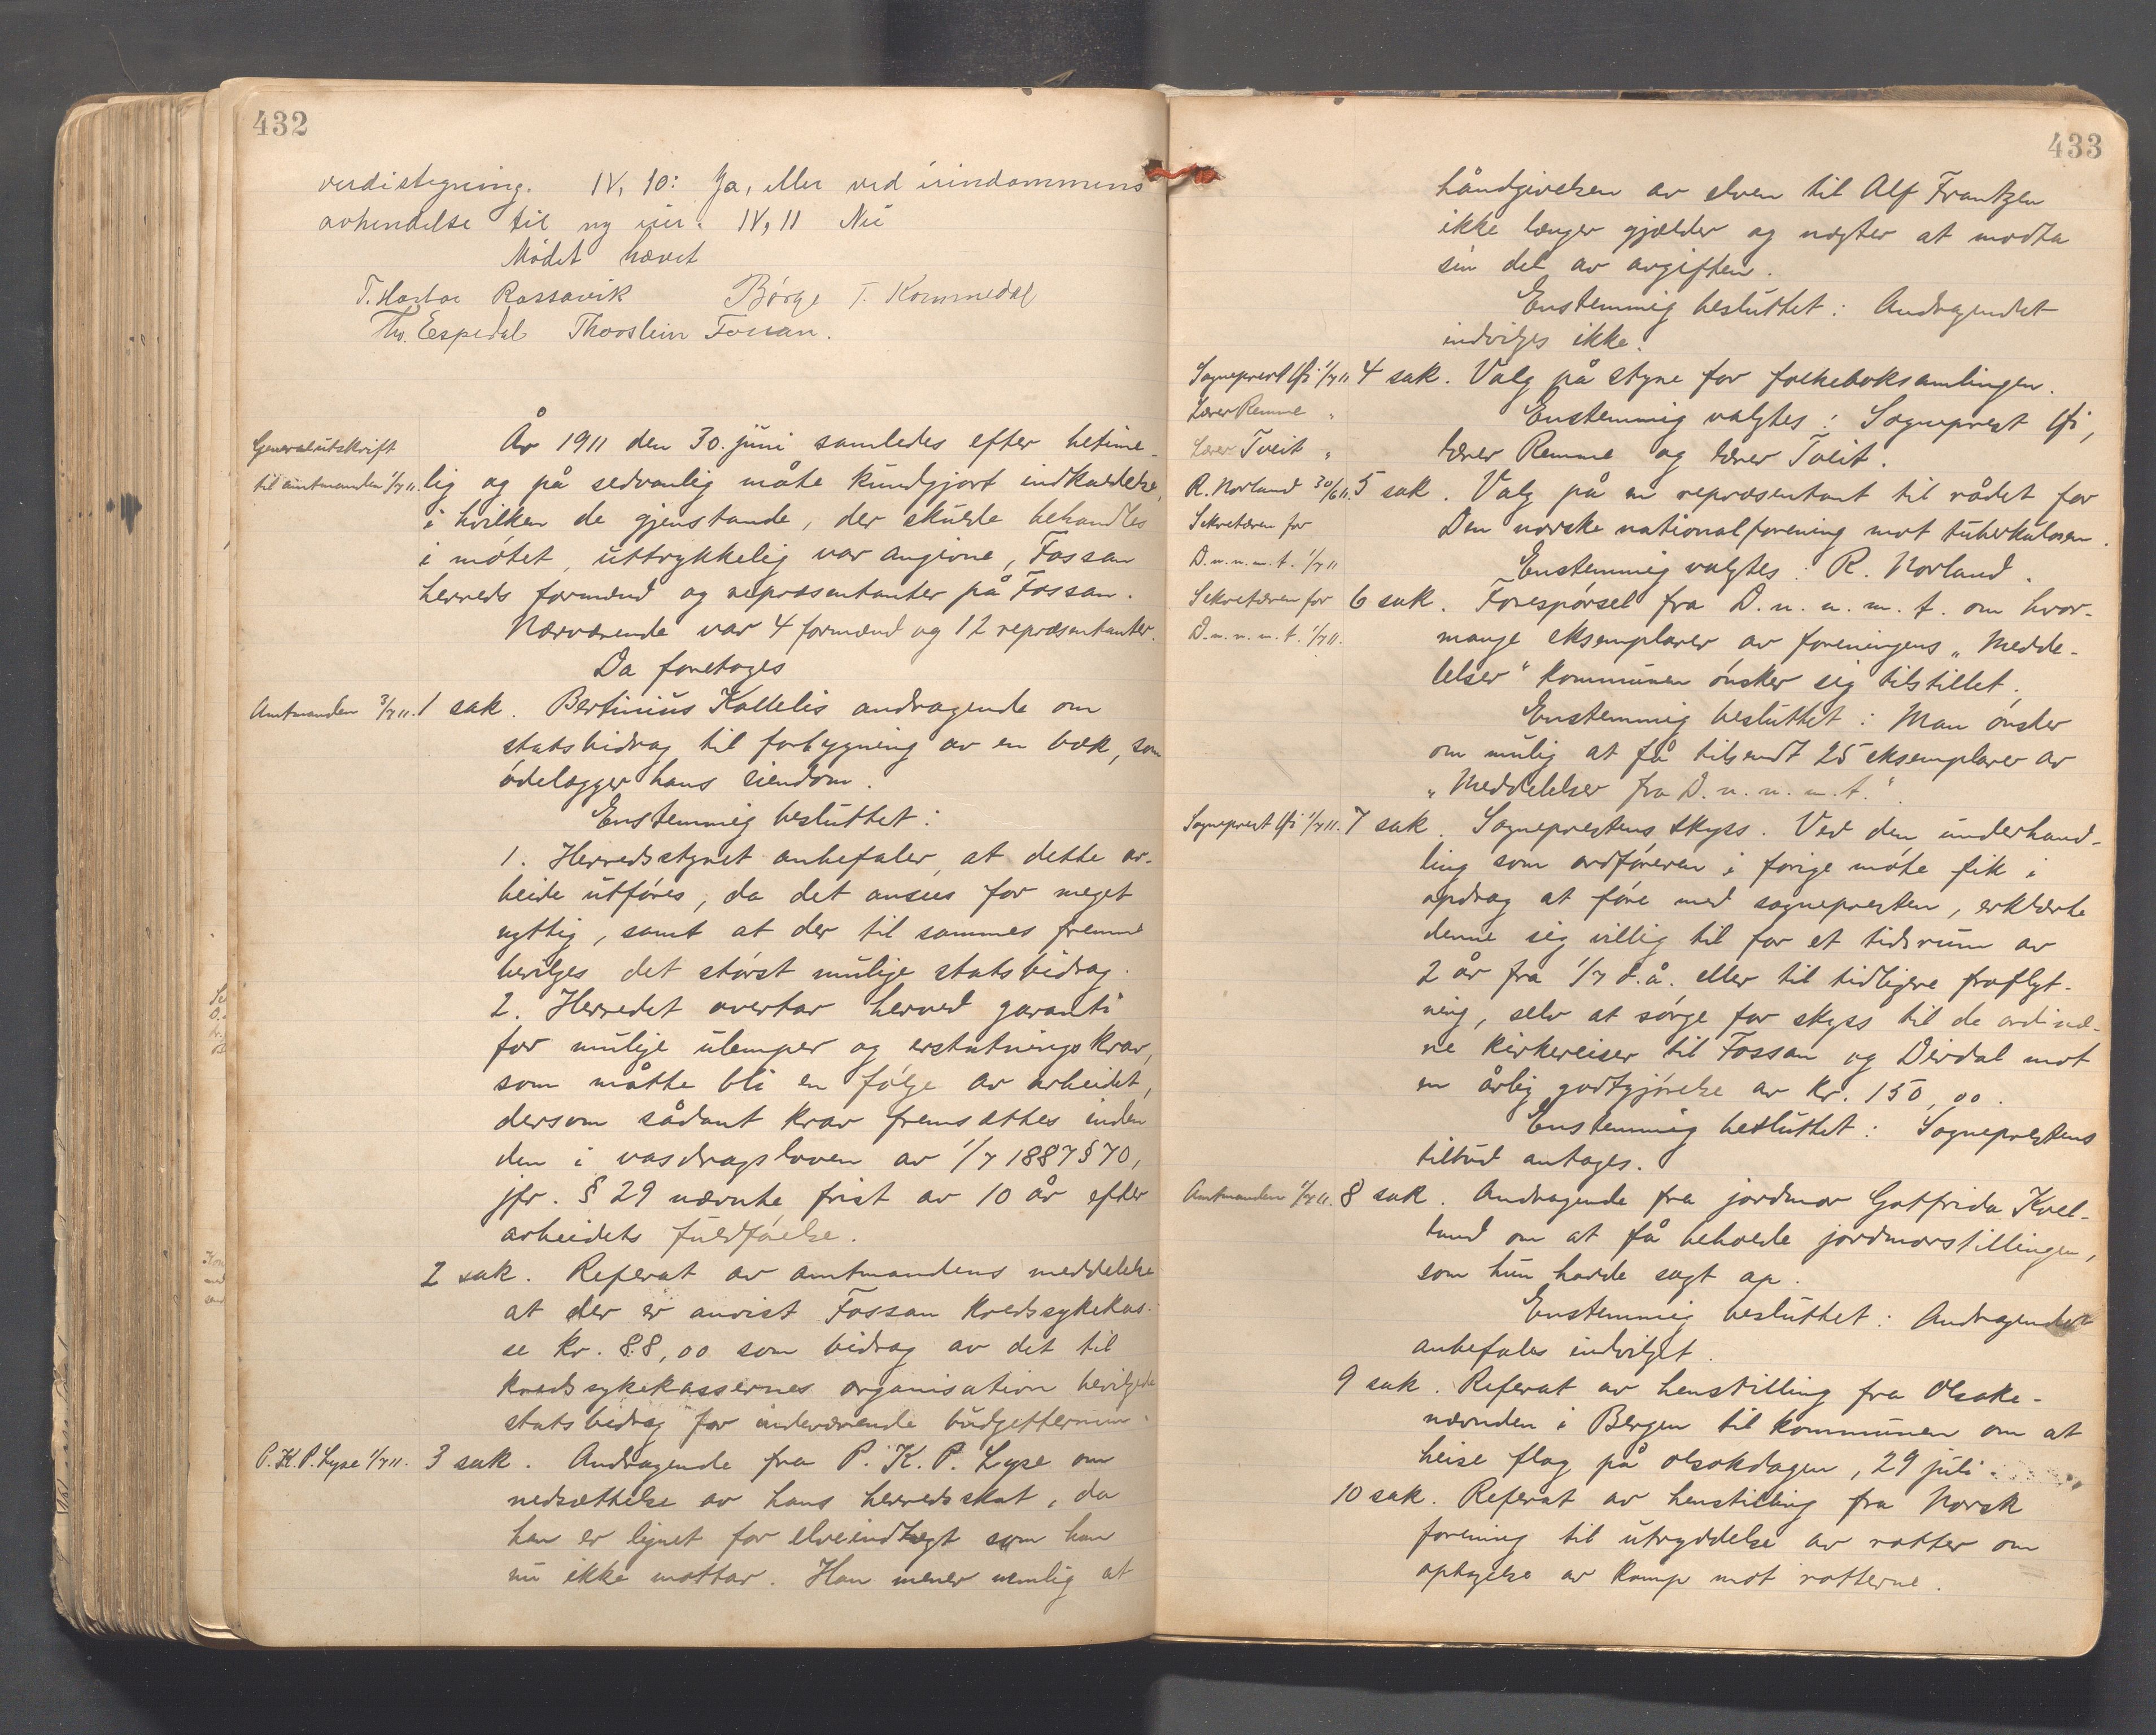 432
verdistegning. IV, 10: Ja, eller ved eiendommens
avhendelse til ny eier. IV, 11 Nei
Mødet hævet
Rossavik Børge T. Kommedal
Th. Espedal Thorstein Fossan.
Generalutskrift
til amtmanden 1/7 11.
År 1911 den 30. juni samledes efter betime-
lig og på sedvanlig måte kundgjort indkaldelse,
i hvilken de gjenstande, der skulde behandles
i møtet, uttrykkelig var angivne, Fossan
herreds formænd og repræsentanter på Fossan.
Nærværende var 4 formænd og 12 repræsentanter.
Da foretoges
Amtmanden 3/7 11. 1 sak. Bertinius Kallelis andragende om
statsbidrag til forbygning av en bæk, som
ødelægger hans eiendom.
Enstemmig besluttet:
1. Herredsstyret anbefaler, at dette ar-
beide utføres, da det ansees for meget
nyttig, samt at der til sammes fremme
bevilges det størst mulige statsbidrag.
2. Herredet overtar herved garanti
for mulige ulemper og erstatningskrav,
som måtte bli en følge av arbeidet,
dersom sådant krav fremsættes inden
den i vasdragsloven av 1/7 1887 § 70,
jfr. § 29 nævnte frist av 10 år efter
arbeidets fuldførelse.
2 sak. Referat av amtmandens meddelelse
at der er anvist Fossan kredssykekas-
se kr. 88,00 som bidrag av det til
kredssykekassernes organisation bevilgede
statsbidrag for indeværende budgettermin.
P. K. P. Lyse 1/7 11. 3 sak. Andragende fra P. K. P. Lyse om
nedsættelse av hans herredsskat, da
han er lignet for elveindtægt som han
nu ikke mottar. Han mener nemlig at
433
håndgivelsen av elven til Alf Frantzen
ikke længer gjælder og nægter at modta
sin del av avgiften.
Enstemmig besluttet: Andragendet
indvilges ikke.
Sogneprest Øi 1/7 11. 4 sak. Valg på styre for folkeboksamlingen.
Lærer Remme " Enstemmig valgtes: Sogneprest Øi,
Lærer Tveit " lærer Remme og lærer Tveit.
R. Norland 30/6 11. 5 sak. Valg på en repræsentant til rådet for
Sekretæren for Den norske nationalforening mot tuberkulosen.
D. n. n. m. t. 1/7 11 Enstemmig valgtes: R. Norland.
Sekretæren for 6 sak. Forespørsel fra D. n. n. m. t. om hvor-
D. n. n. m. t. 1/7 11. mange eksemplarer av foreningens „Medde-
lelser“ kommunen ønsker sig tilstillet.
Enstemmig besluttet: Man ønsker
om mulig at få tilsendt 25 eksemplarer av
„Meddelelser fra D. n. n. m. t.“
Sogneprest Øi 1/7 11. 7 sak. Sogneprestens skyss. Ved den underhand-
ling som ordføreren i forige møte fik i
opdrag at føre med sognepresten, erklærte
denne sig villig til for et tidsrum av
2 år fra 1/7 d.å. eller til tidligere fraflyt-
ning, selv at sørge for skyss til de ordinæ-
re kirkereiser til Fossan og Dirdal mot
en årlig godtgjørelse av kr. 150,00.
Enstemmig besluttet: Sogneprestens
tilbud antages.
Amtmanden 1/7 11. 8 sak. Andragende fra jordmor Gotfrida Kvel-
land om at få beholde jordmorstillingen,
som hun hadde sagt op.
Enstemmig besluttet: Andragendet
anbefales indvilget.
9 sak. Referat av henstilling fra Olsoks-
nævnden i Bergen til kommunen om at
heise flag på olsokdagen, 29 juli.
10 sak. Referat av henstilling fra Norsk
forening til utryddelse av rotter om
optagelse av kamp mot rotterne.